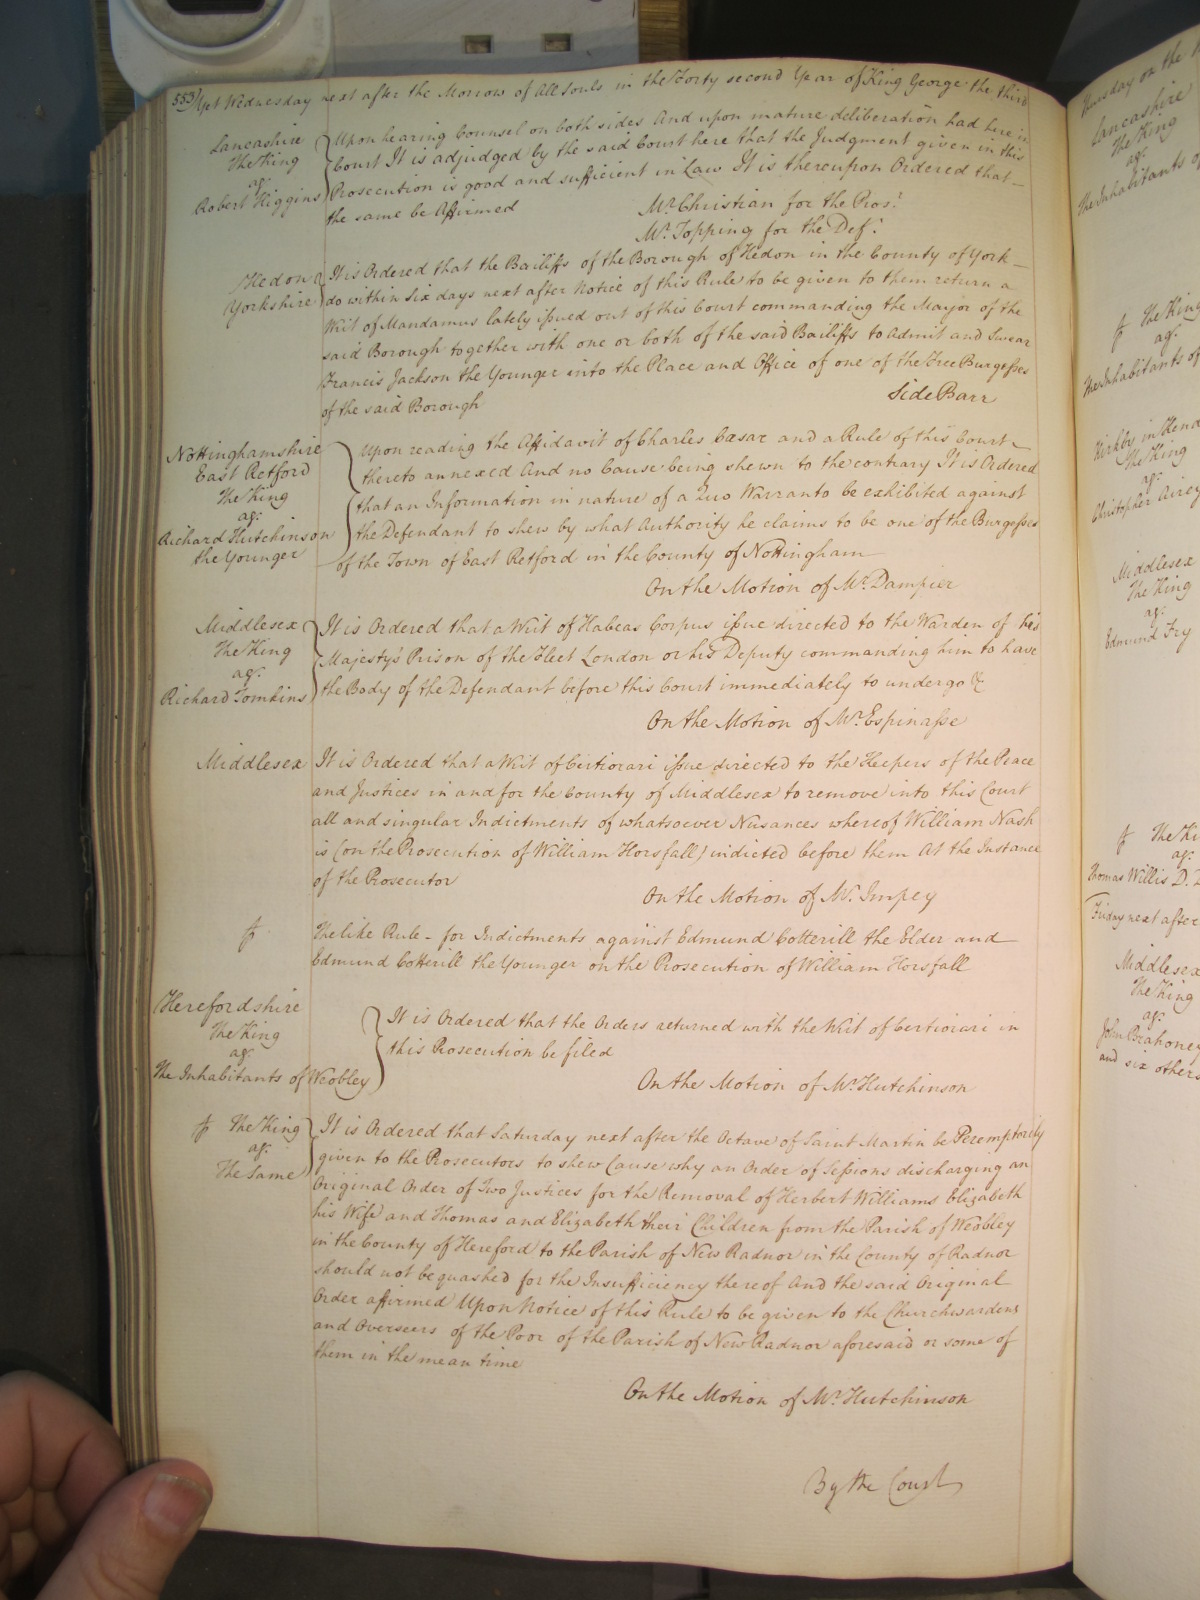 553) Yet Wednesday next after the Morrow of All Souls in the Forty second Year of King George the third
Lancashire
The King
agt
Robert Higgins
Upon hearing Counsel on both sides And upon mature deliberation had here in
Court It is adjudged by the said Court here that the Judgment given in this
Prosecution is good and sufficient in Law It is thereupon Ordered that
the same be Affirmed
Mr. Christian for the Prosr.
Mr. Topping for the Deft.
Hedon
Yorkshire
It is Ordered that the Bailiffs of the Borough of Hedon in the County of York
do within Six days next after Notice of this Rule to be given to them return a
Writ of Mandamus lately issued out of this Court commanding the Mayor of the
said Borough together with one or both of the said Bailiffs to Admit and Swear
Francis Jackson the Younger into the Place and Office of one of the Free Burgesses
of the said Borough
Side Barr
Nottinghamshire
East Retford
The King
agt.
Richard Hutchinson
the Younger
Upon reading the Affidavit of Charles Cæsar and a Rule of this Court
thereto annexed And no Cause being shewn to the contrary It is Ordered
that an Information in nature of a Quo Warranto be exhibited against
the Defendant to shew by what Authority he claims to be one of the Burgesses
of the Town of East Retford in the County of Nottingham
On the Motion of Mr. Dampier
Middlesex
The King
agt.
Richard Tomkins
It is Ordered that a Writ of Habeas Corpus issue directed to the Warden of his
Majesty's Prison of the Fleet London or his Deputy commanding him to have
the Body of the Defendant before this Court immediately to undergo &c
On the Motion of Mr. Espinasse
Middlesex
It is Ordered that a Writ of Certiorari issue directed to the Keepers of the Peace
and Justices in and for the County of Middlesex to remove into this Court
all and singular Indictments of whatsoever Nusances whereof William Nash
is (on the Prosecution of William Horsfall) indicted before them At the Instance
of the Prosecutor
On the Motion of Mr. Impey
The like Rule - for Indictments against Edmund Cotterill the Elder and
Edmund Cotterill the Younger on the Prosecution of William Horsfall
Herefordshire
The King
agt.
The Inhabitants of Weobley
It is Ordered that the Orders returned with the Writ of Certiorari in
this Prosecution be filed
On the Motion of Mr. Hutchinson
The King
agt.
The Same
It is Ordered that Saturday next after the Octave of Saint Martin be Peremptorily
given to the Prosecutors to shew Cause why an Order of Sessions discharging an
Original Order of Two Justices for the Removal of Herbert Williams Elizabeth
his Wife and Thomas and Elizabeth their Children from the Parish of Weobley
in the County of Hereford to the Parish of New Radnor in the County of Radnor
should not be quashed for the Insufficiency thereof And the said Original
Order affirmed Upon Notice of this Rule to be given to the Churchwardens
and Overseers of the Poor of the Parish of New Radnor aforesaid or some of
them in the mean time
On the Motion of Mr. Hutchinson
By the Court
Thursday on the
Lancashire
The King
agt.
The Inhabitants of
The King
agt.
The Inhabitants of
The King
agt.
Christopher Airey
Middlesex
The King
agt.
Edmund Fry
agt.
Thomas Willis D.
Friday next after
Middlesex
The King
agt.
John Brahoney
and six others